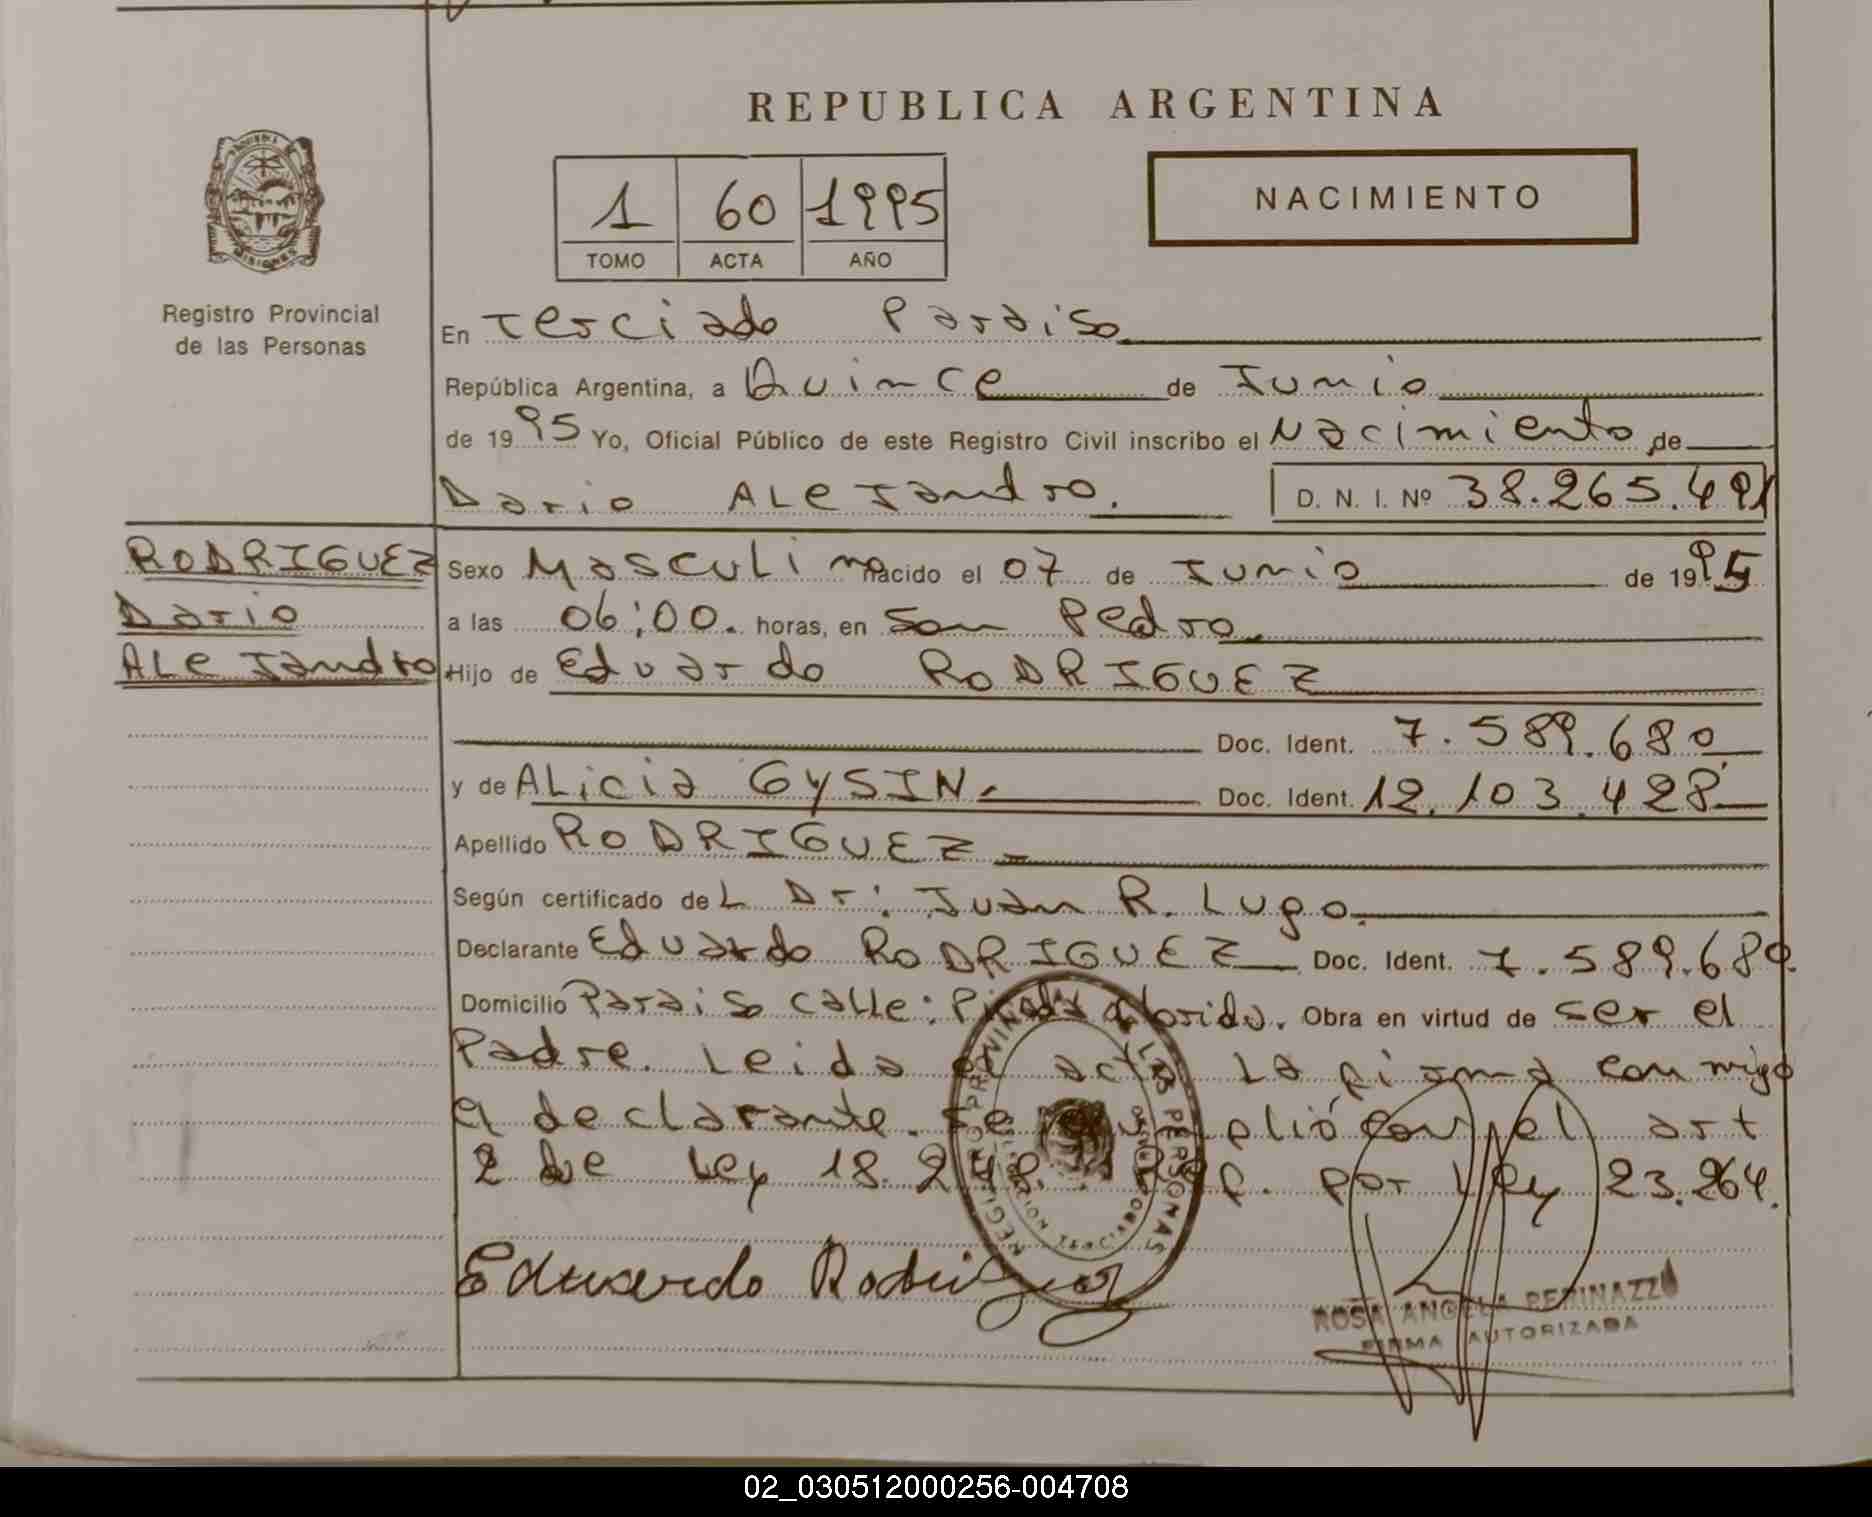 REPUBLICA ARGENTINA
NACIMIENTO
1 60 1995
TOMO ACTA AÑO
Registro Provincial
de las Personas
En Terciado Paraiso
República Argentina, a Quince de Junio
de 1995 Yo, Oficial Público de este Registro Civil inscribo el Nacimiento de
Dario ALeJandro. D. N. I. Nº 38.265.491
RODRIGUEZ
Dario
ALeJandro
Sexo Masculino nacido el 07 de Junio de 1995
a las 06:00. horas, en San Pedro.
Hijo de Eduardo RODRIGUEZ
Doc. Ident. 7.589.680
y de ALicia GYSIN.- Doc. Ident. 12.103.428
Apellido RODRIGUEZ -
Según certificado de L Dr: Juan R. Lugo.
Declarante Eduardo RODRIGUEZ Doc. Ident. 7.589.680.
Domicilio Paraiso calle: Picada Florida. Obra en virtud de ser el
Padre. Leida el acta La firma conmigo
el declarante. Se cumplió con el art
2 de Ley 18.248. Rep. por Ley 23.264.
REGISTRO PROVINCIAL DE LAS PERSONAS
Eduardo Rodriguez
ROSA ANGELA PERINAZZO
FIRMA AUTORIZADA
02_030512000256-004708